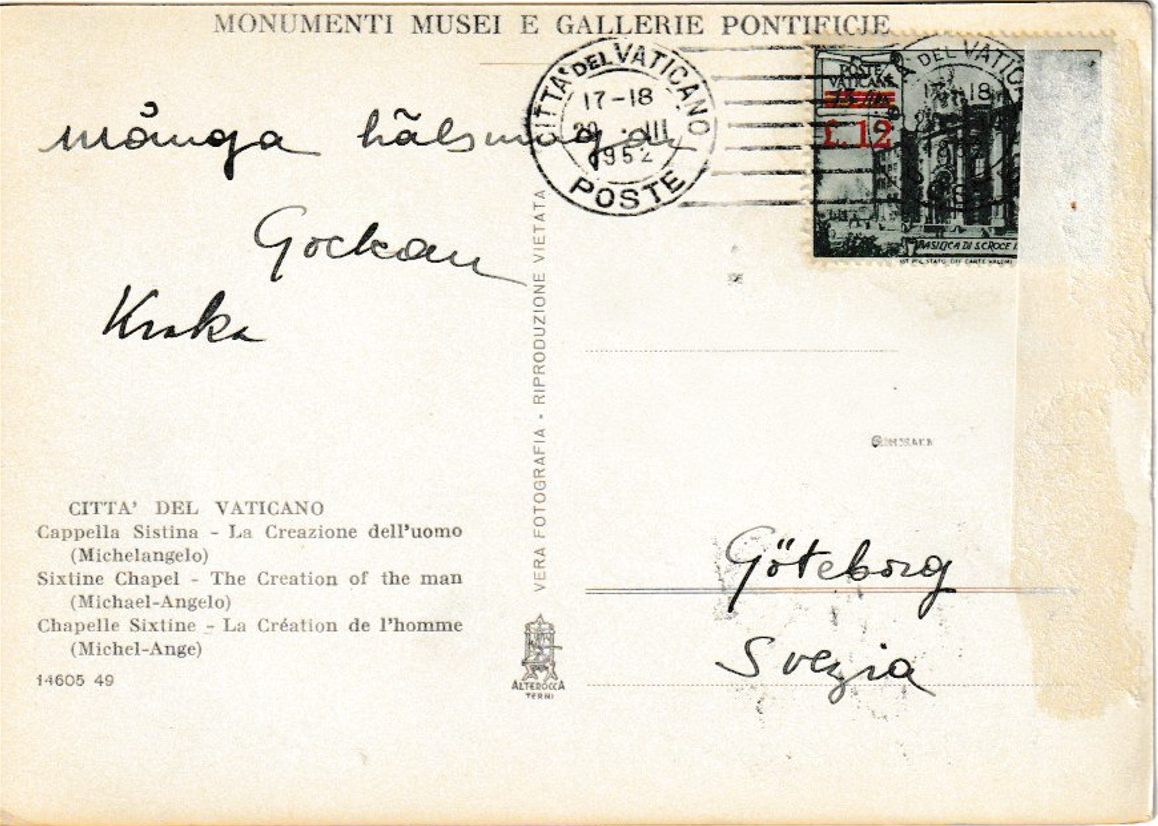 MONUMENTI MUSEI E GALLERIE PONTIFICIE
CITTA' DEL VATICANO
17-18
29 · III
1952
POSTE
POSTE
VATICANE
£. 12
BASILICA DI S. CROCE
A DEL VATIC
17-18
månnga hälsningar
Gockan
Kraka
VERA FOTOGRAFIA - RIPRODUZIONE VIETATA
CITTA' DEL VATICANO
Cappella Sistina - La Creazione dell'uomo
(Michelangelo)
Sixtine Chapel - The Creation of the man
(Michael-Angelo)
Chapelle Sixtine - La Création de l'homme
(Michel-Ange)
14605 49
ALTEROCCA
TERNI
Göteborg
Svezia